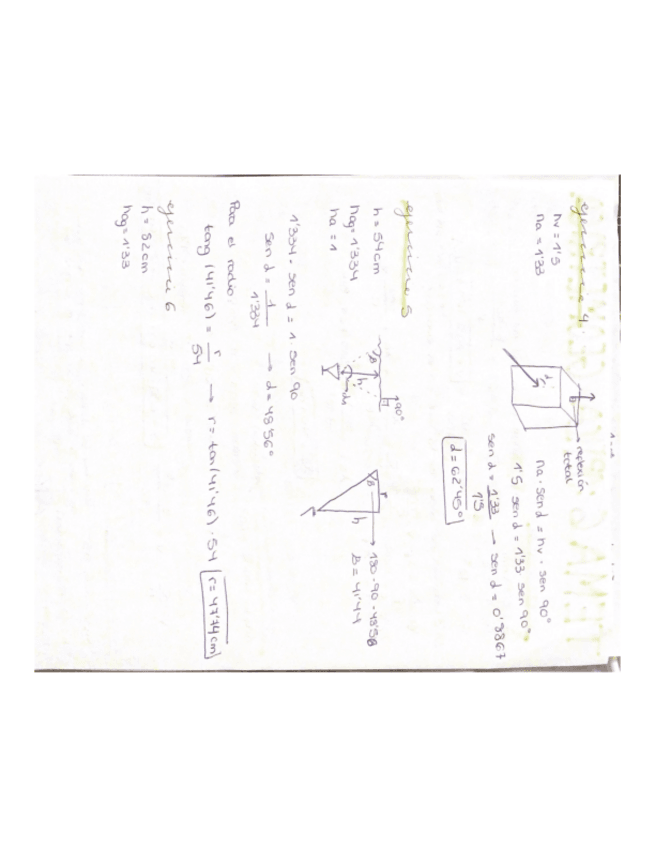 ejercicio 4
nv = 1'5
na = 1'33
reflexión
total
na · sen α = nv · sen 90°
1'5 sen α = 1'33 · sen 90°
sen α = 1'33 / 1'5 → sen α = 0'8867
α = 62'45°
ejercicio 5
h = 54 cm
nag = 1'334
na = 1
90°
h
r
B
h
180 - 90 - 48'56
B = 41'44
1'334 · sen α = 1 · sen 90
sen α = 1 / 1'334 → α = 48'56°
Para el radio
tang (41'46) = r / 54 → r = tan(41'46) · 54
r = 47'74 cm
ejercicio 6
h = 82 cm
nag = 1'33